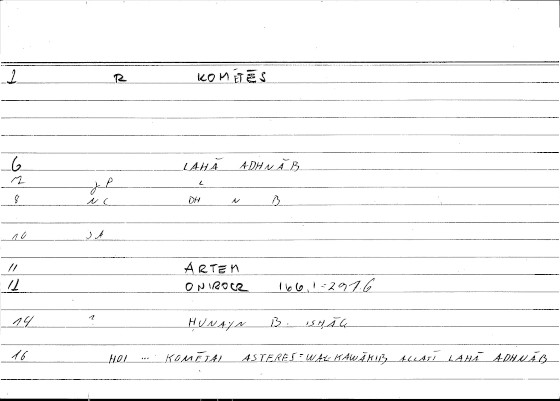 1 R KOMĒTĒS
6 LAHĀ ADHNĀB
7 gP L
8 NC DH N B
10 SA
11 ARTEM
12 ONIROCR 166,1=291.6
14 1 ḤUNAYN B. ISḤĀQ
16 HOI ... KOMĒTAI ASTERES=WAL-KAWĀKIB ALLATĪ LAHĀ ADHNĀB